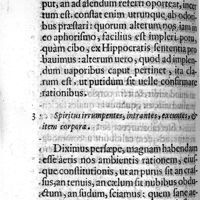 put, an ad alendum referri oporteat, incer-
tum est. constat enim utrunque, ab odori-
bus præstari: quorum alterum, nos iam in
eo aphorismo, facilius est impleri potu,
quàm cibo, ex Hippocratis sententia pro
bauimus: alterum uero, quod ad implen-
dum uaporibus caput pertinet, ita cla-
rum est. ut putidum sit uelle confirmare
rationibus.
3 Spiritus irrumpentes, intrantes, exeuntes, &
item corpora.
Diximus persæpe, magnam habendam
esse aëris nos ambientis rationem, eius-
que constitutionis, ut an purus sit an cras-
sus, an tenuis, an cælum sit nubibus obdu-
ctum, an sudum, sciamus: quando, ut